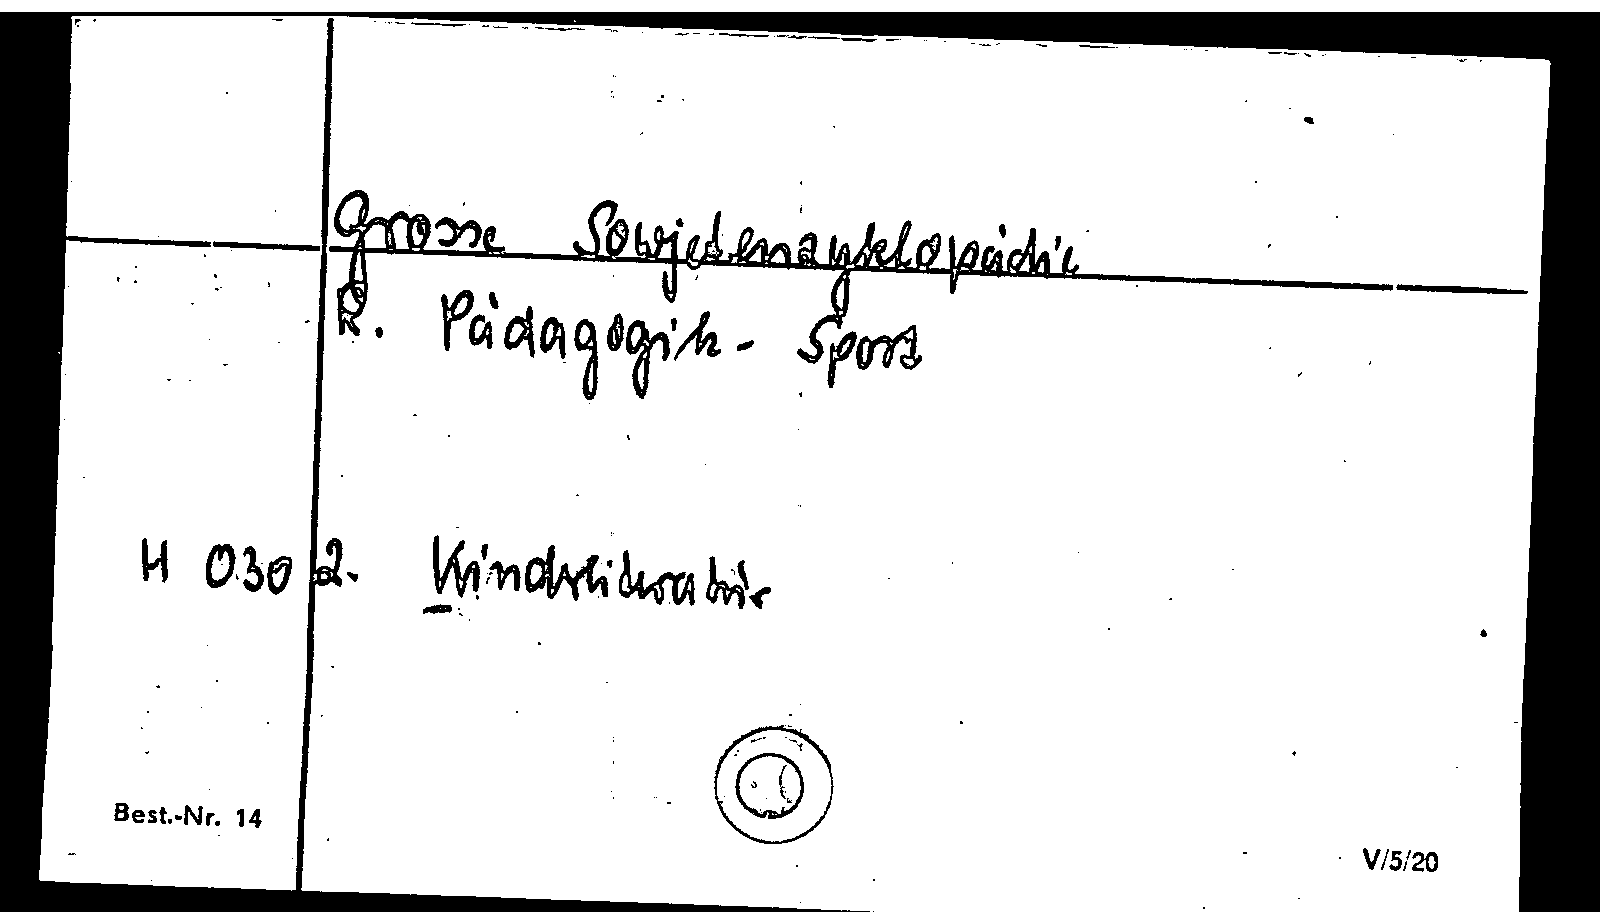 Grosse Sowjetenzyklopädie
R. Pädagogik - Sport
H 030 2. Kinderliteratur
Best.-Nr. 14
V/5/20